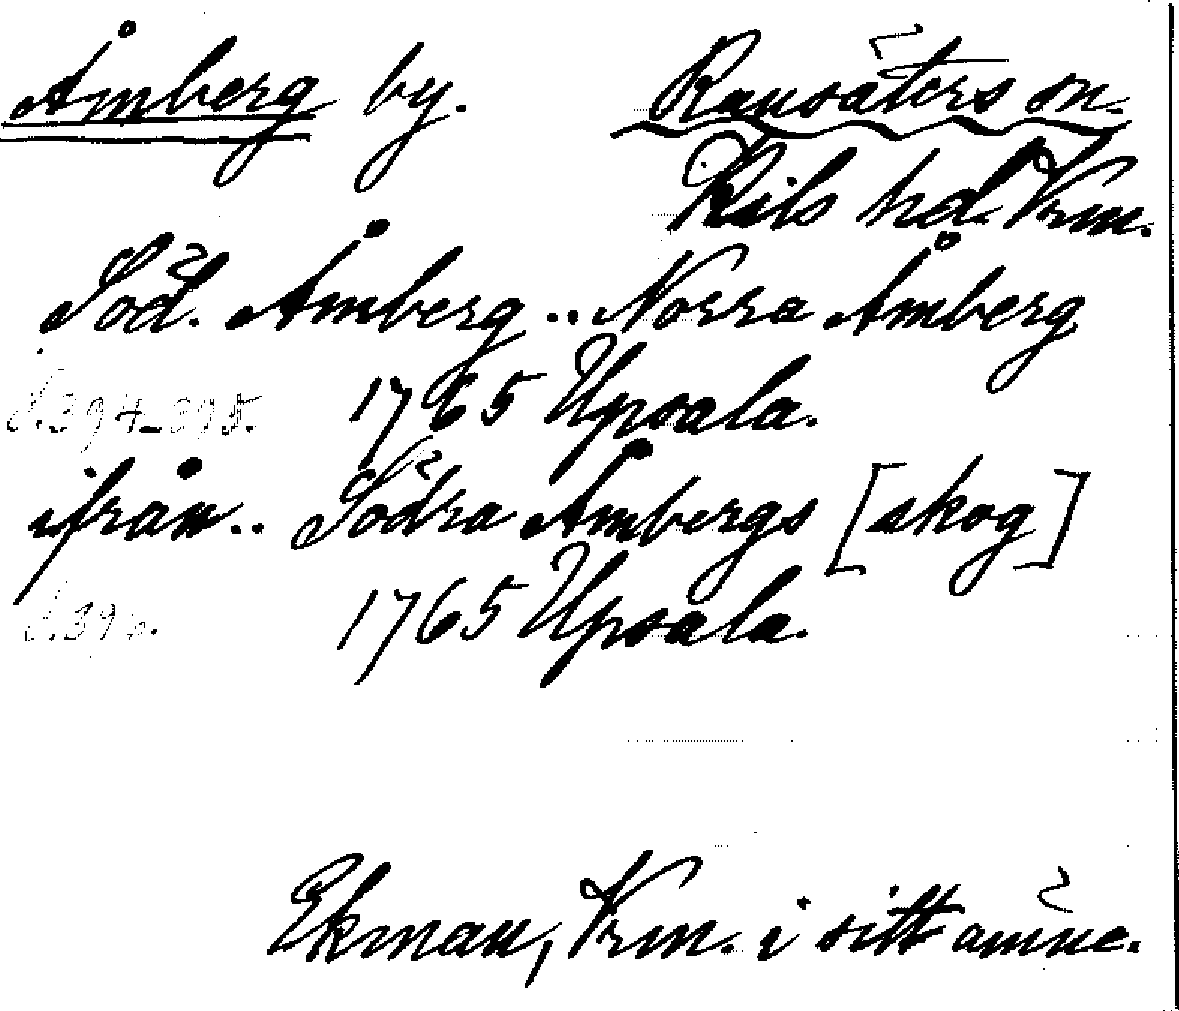 Åmberg by. Ransäters sn.
Kils hd. Vrm.
Söd. Åmberg .. Norra Åmberg
s. 394-395. 1765 Upsala.
ifrån .. Södra Åmbergs [skog]
1765 Upsala.
Ekman, Vrm. i sitt ämne.